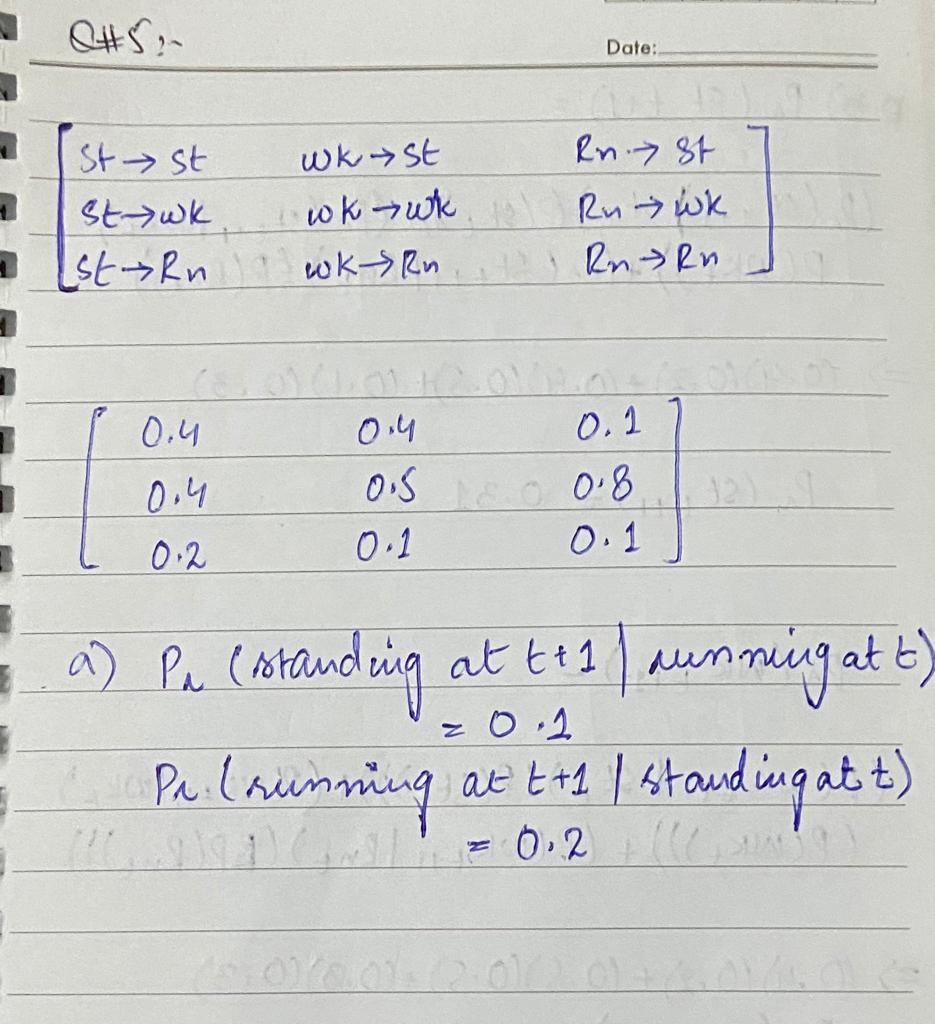 Q#5:-
Date:
St → St wk → St Rn → St
St → wk wk → wk Rn → wk
St → Rn wk → Rn Rn → Rn
0.4 0.4 0.1
0.4 0.5 0.8
0.2 0.1 0.1
a) Pr (standing at t+1 | running at t)
= 0.1
Pr (running at t+1 | standing at t)
= 0.2